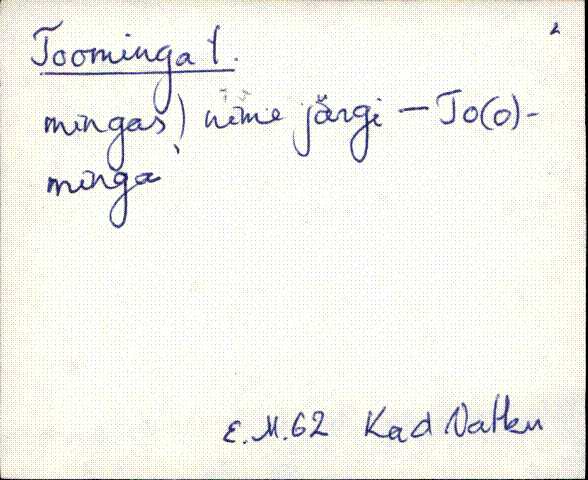 2
Toominga t.
mingas) nime järgi — To(o)-
minga
E.M.62 Kad Vatku